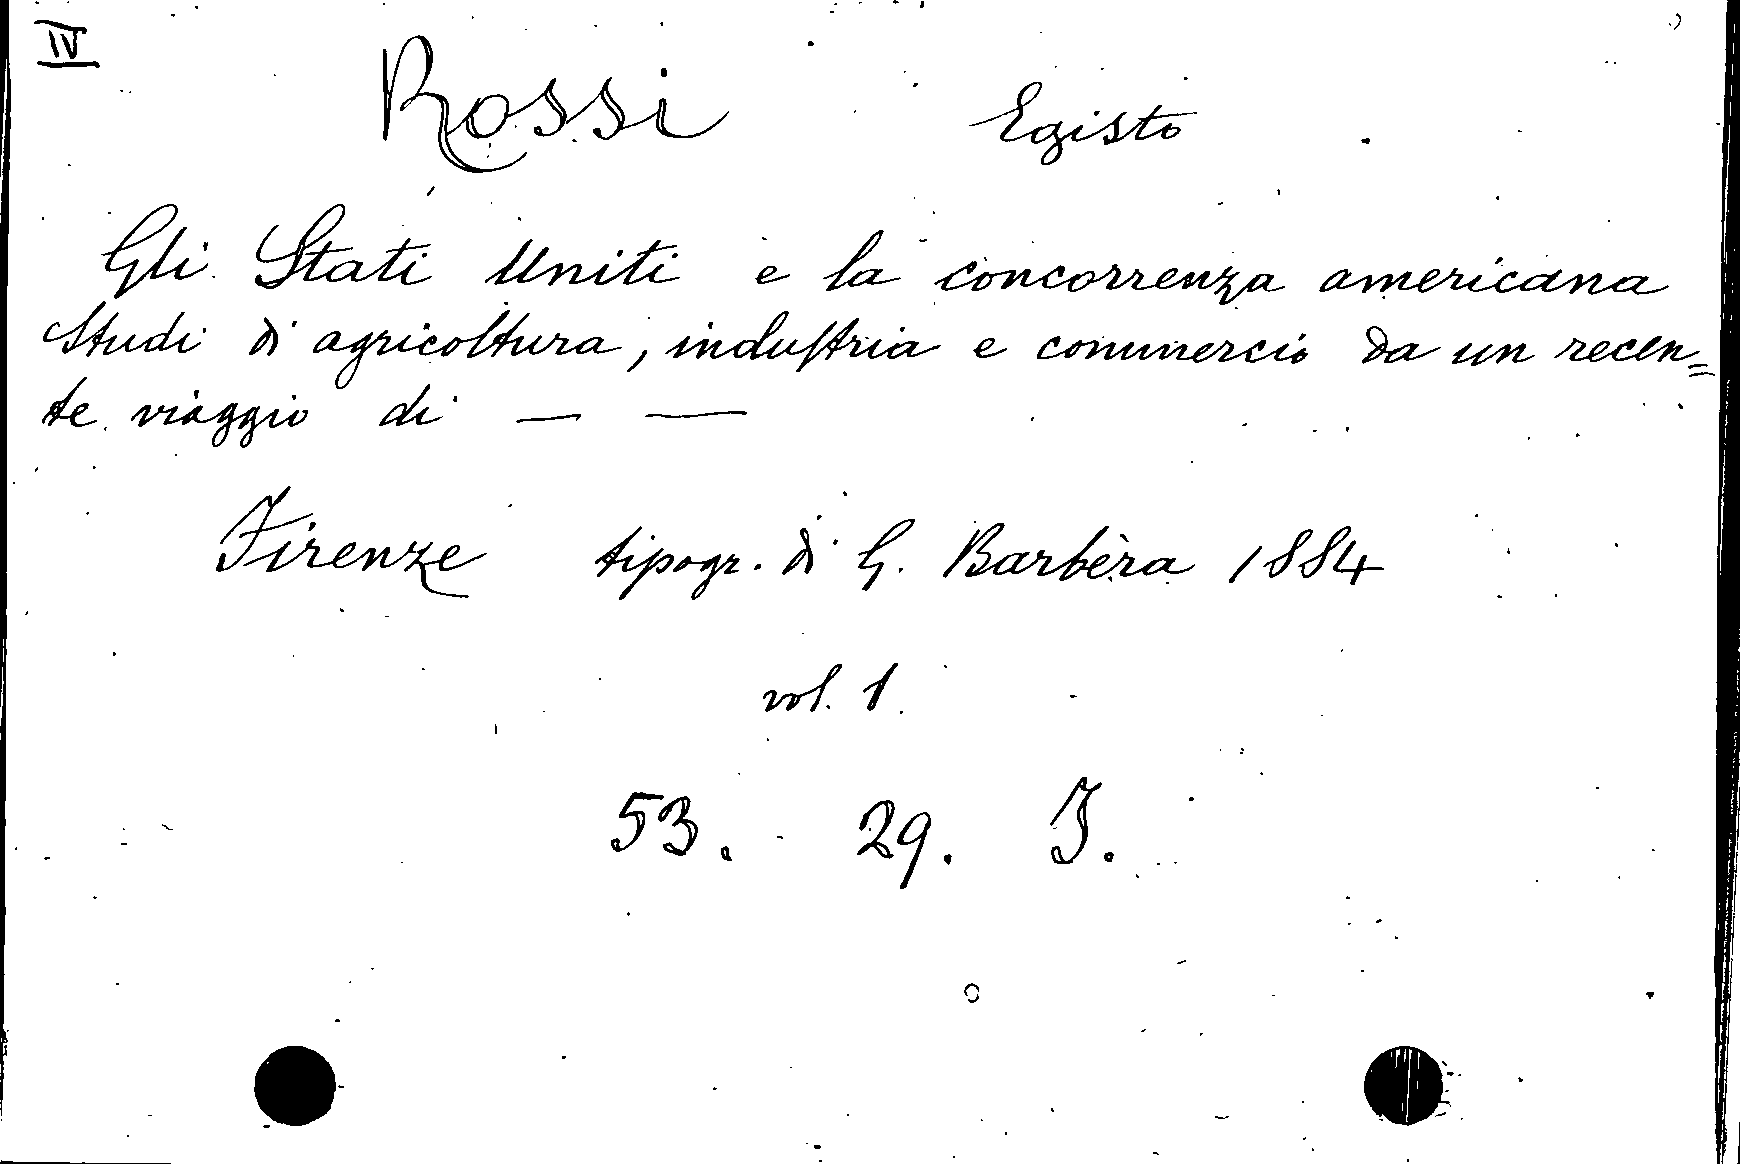 IV
Rossi Egisto
Gli Stati Uniti e la concorrenza americana
Studi di agricoltura, industria e commercio da un recen=
te viaggio di — —
Firenze tipogr. di G. Barbèra 1884
vol. 1.
53. 29. J.